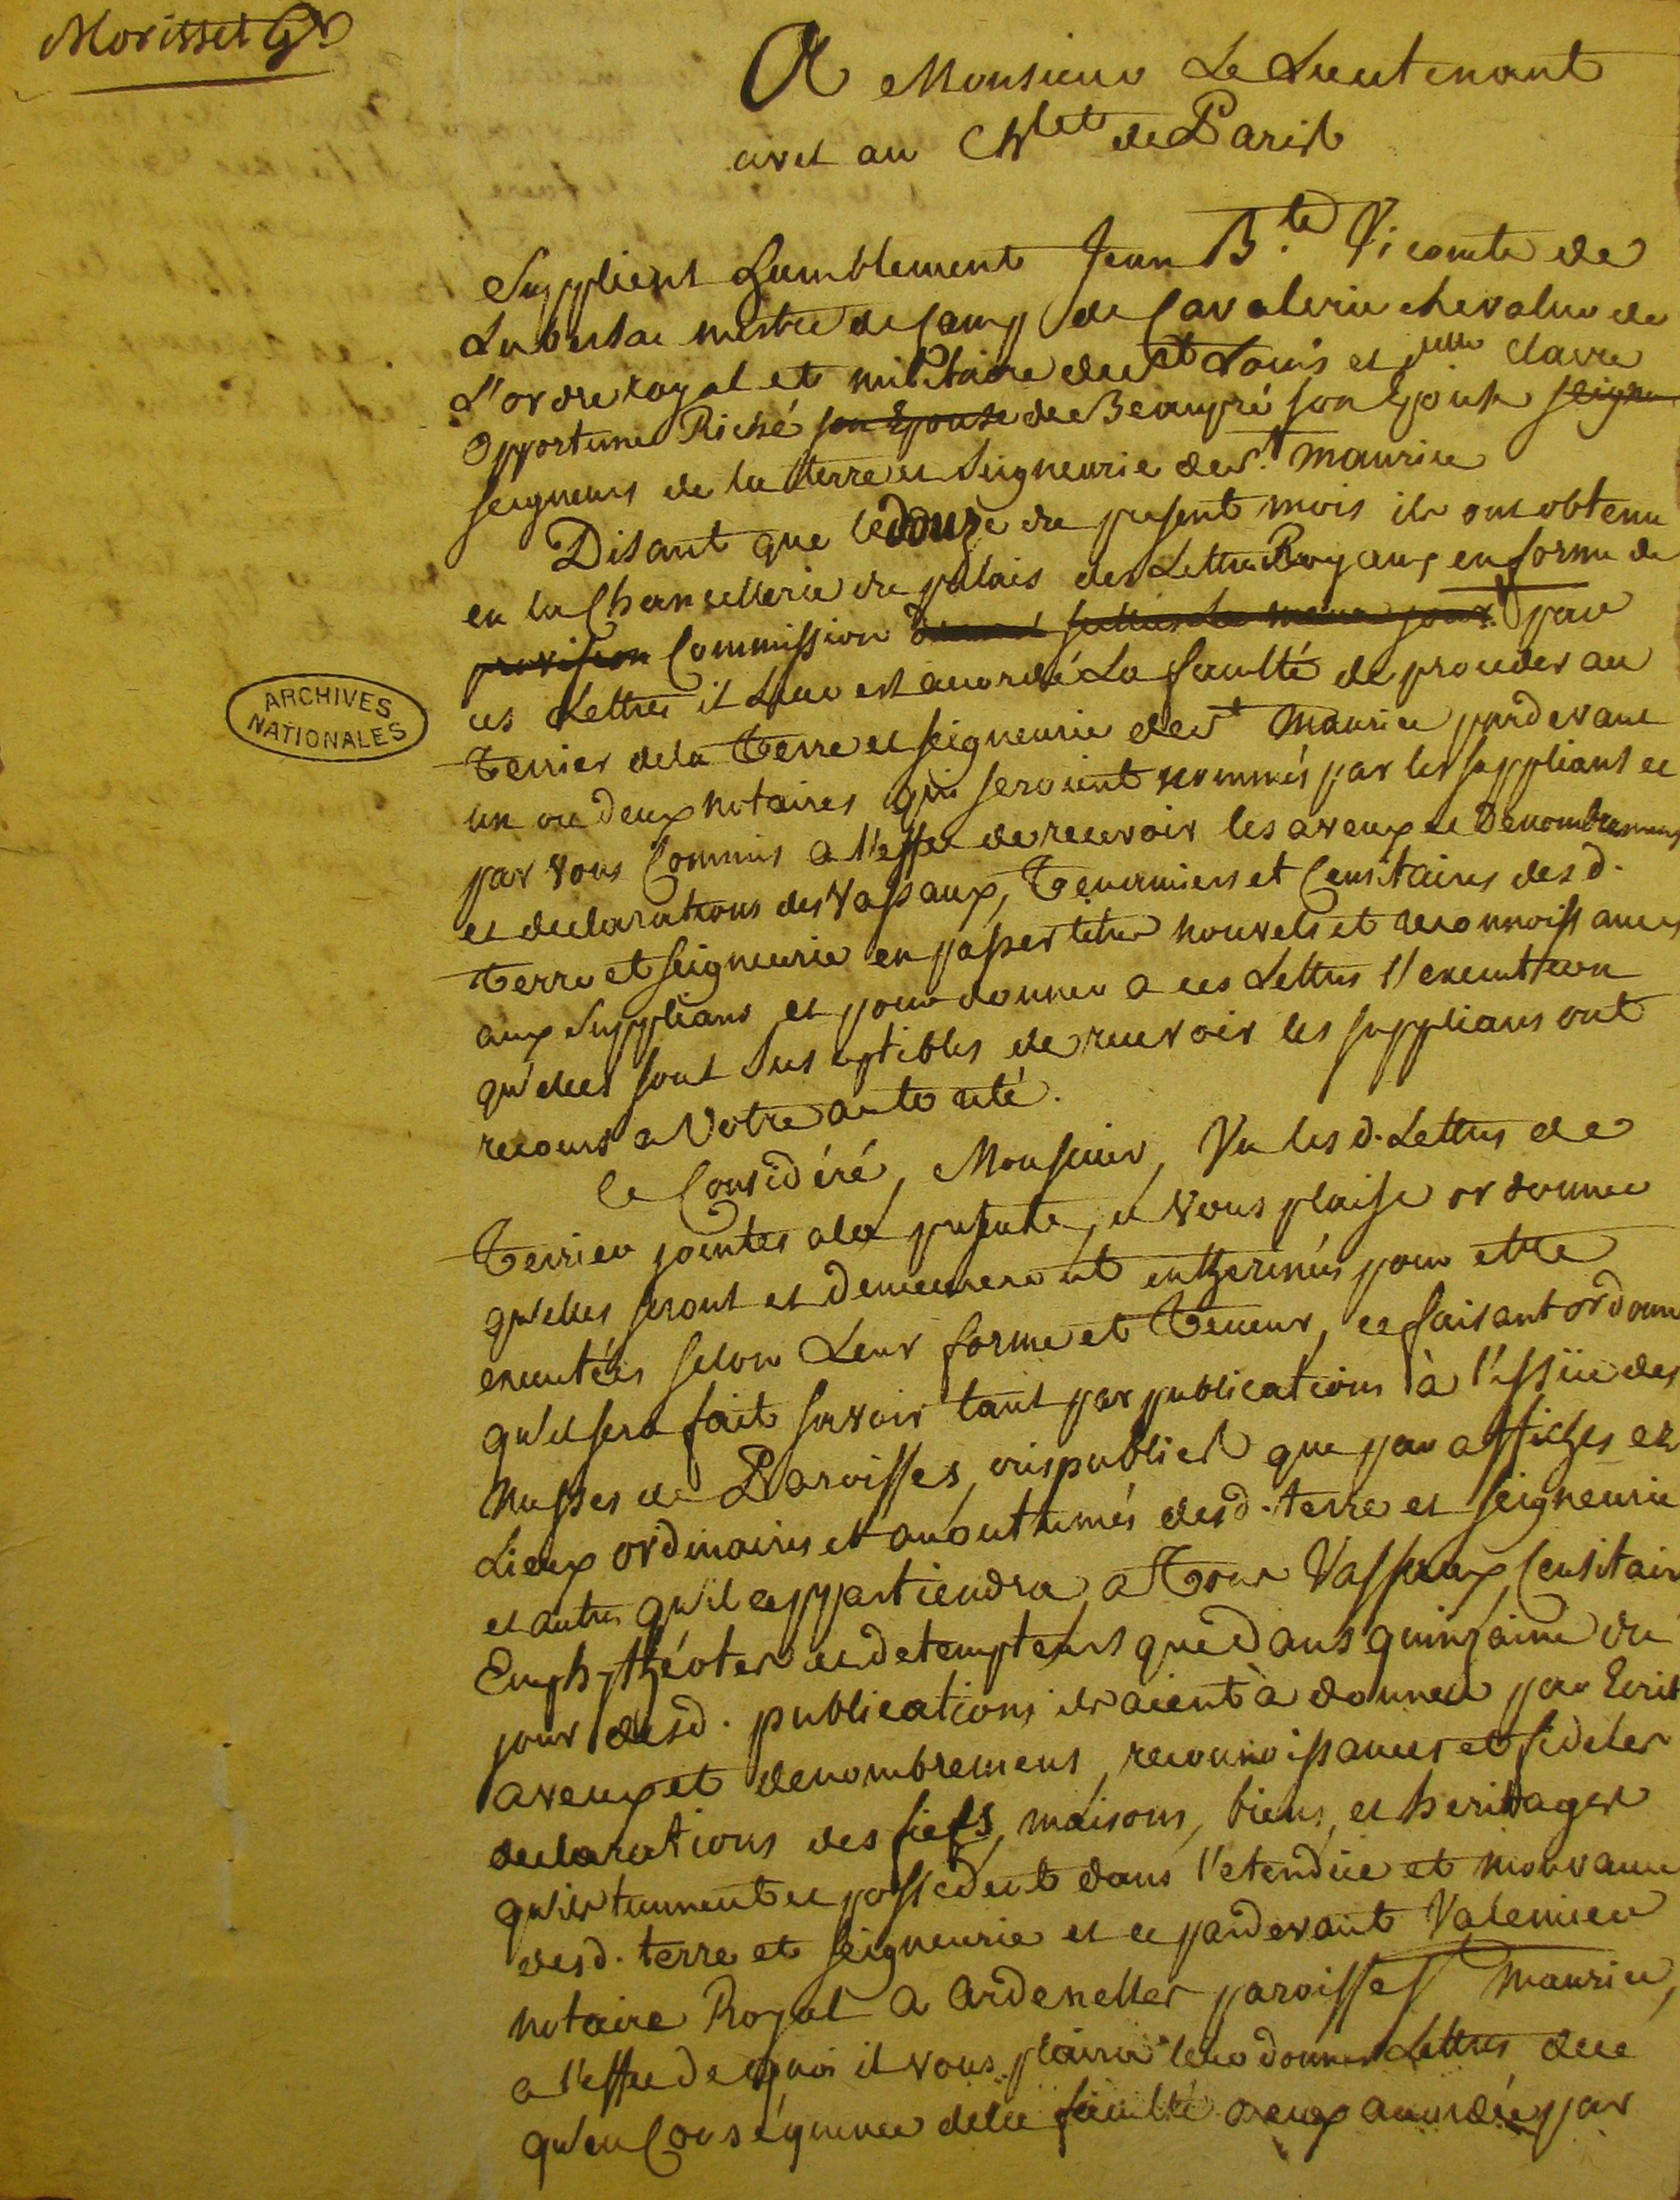 Morisset Gr
A Monsieur Le Lieutenant
civil au Chlet de Paris
Supplient humblement Jean Bte Vicomte de
Lubersac mestre de Camp de Cavalerie chevalier de
L'ordre royal et militaire de St Louis et delle Claire
Opportune Riché son Epouse de Beaupré son Epouse seigneu
seigneurs de la terre et Seigneurie de St. Maurice
Disant que le douze du present mois ils ont obtenu
en la Chancellerie du palais des Lettres Royaux en forme de
provision Commission le meme jour par
ces Lettres il Leur est accordé La faculté de proceder au
Terrier de la Terre et seigneurie de St Maurice pardevant
un ou deux notaires qui seroient nommés par les supplians et
par vous Commis a l'effet de recevoir les aveux et Denombremens
et declarations des Vassaux, Tenanciers et Censitaires desd.
terre et seigneurie en passer titres nouvels et reconnoissances
aux Supplians et pour donner a ces Lettres l'execution
qu'elles sont Susceptibles de recevoir les supplians ont
recours a Votre autorité.
Ce Considéré, Monsieur, Vu lesd. Lettres de
Terrier jointes a la presente, il Vous plaise ordonner
qu'elles seront et demeureront entherinées pour etre
executées selon Leur forme et Teneur, ce faisant ordonner
qu'il sera fait savoir tant par publications à l'issüe des
Messes de Paroisses, cris publics que par affiches es
Lieux ordinaires et accoutumés desd. terre et seigneurie
et autres qu'il appartiendra, a Tous Vassaux, Censitaires
Emphytheotes et detempteurs que dans quinzaine du
jour desd. publications ils aient à donner par Ecrit
aveux et denombremens, reconnoissances et fideles
declarations des fiefs, maisons, biens, et heritages
qu'ils tiennent et possedent dans l'etendüe et mouvance
desd. terre et seigneurie et ce pardevant Valemier
notaire Royal a Ardenelles paroisse St Maurice,
a l'effet de quoi il vous plaira leur donner Lettres de ce
qu'en Conséquence de la faculté a eux accordée par
ARCHIVES
NATIONALES